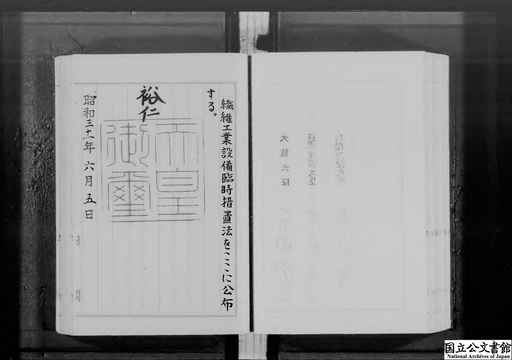 繊維工業設備臨時措置法をここに公布
する。
裕仁
天皇
御璽
昭和三十一年六月五日
国立公文書館
National Archives of Japan